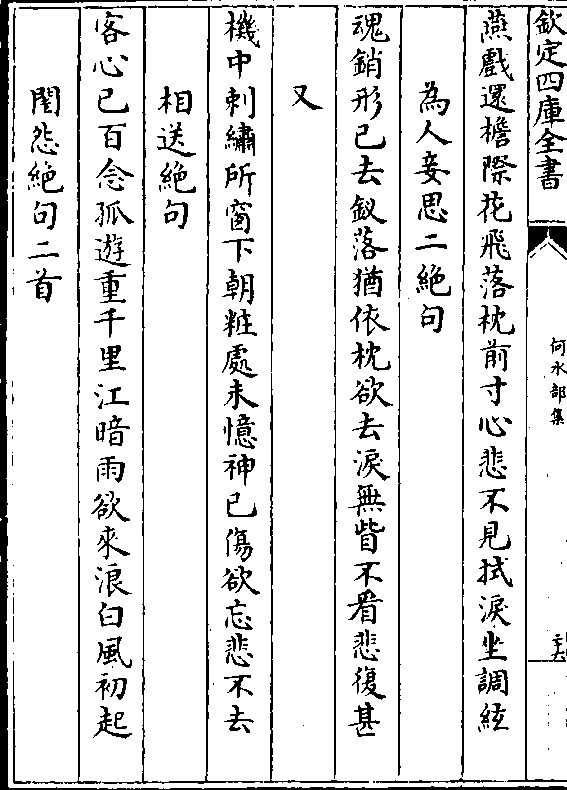 欽定四庫全書
何水部集
二六
燕戲還檐際花飛落枕前寸心悲不見拭淚坐調絃
為人妾思二絶句
魂銷形已去釵落猶依枕欲去淚無眥不看悲復甚
又
機中刺繡所窗下朝粧處未憶神已傷欲忘悲不去
相送絶句
客心已百念孤遊重千里江暗雨欲來浪白風初起
閨怨絶句二首